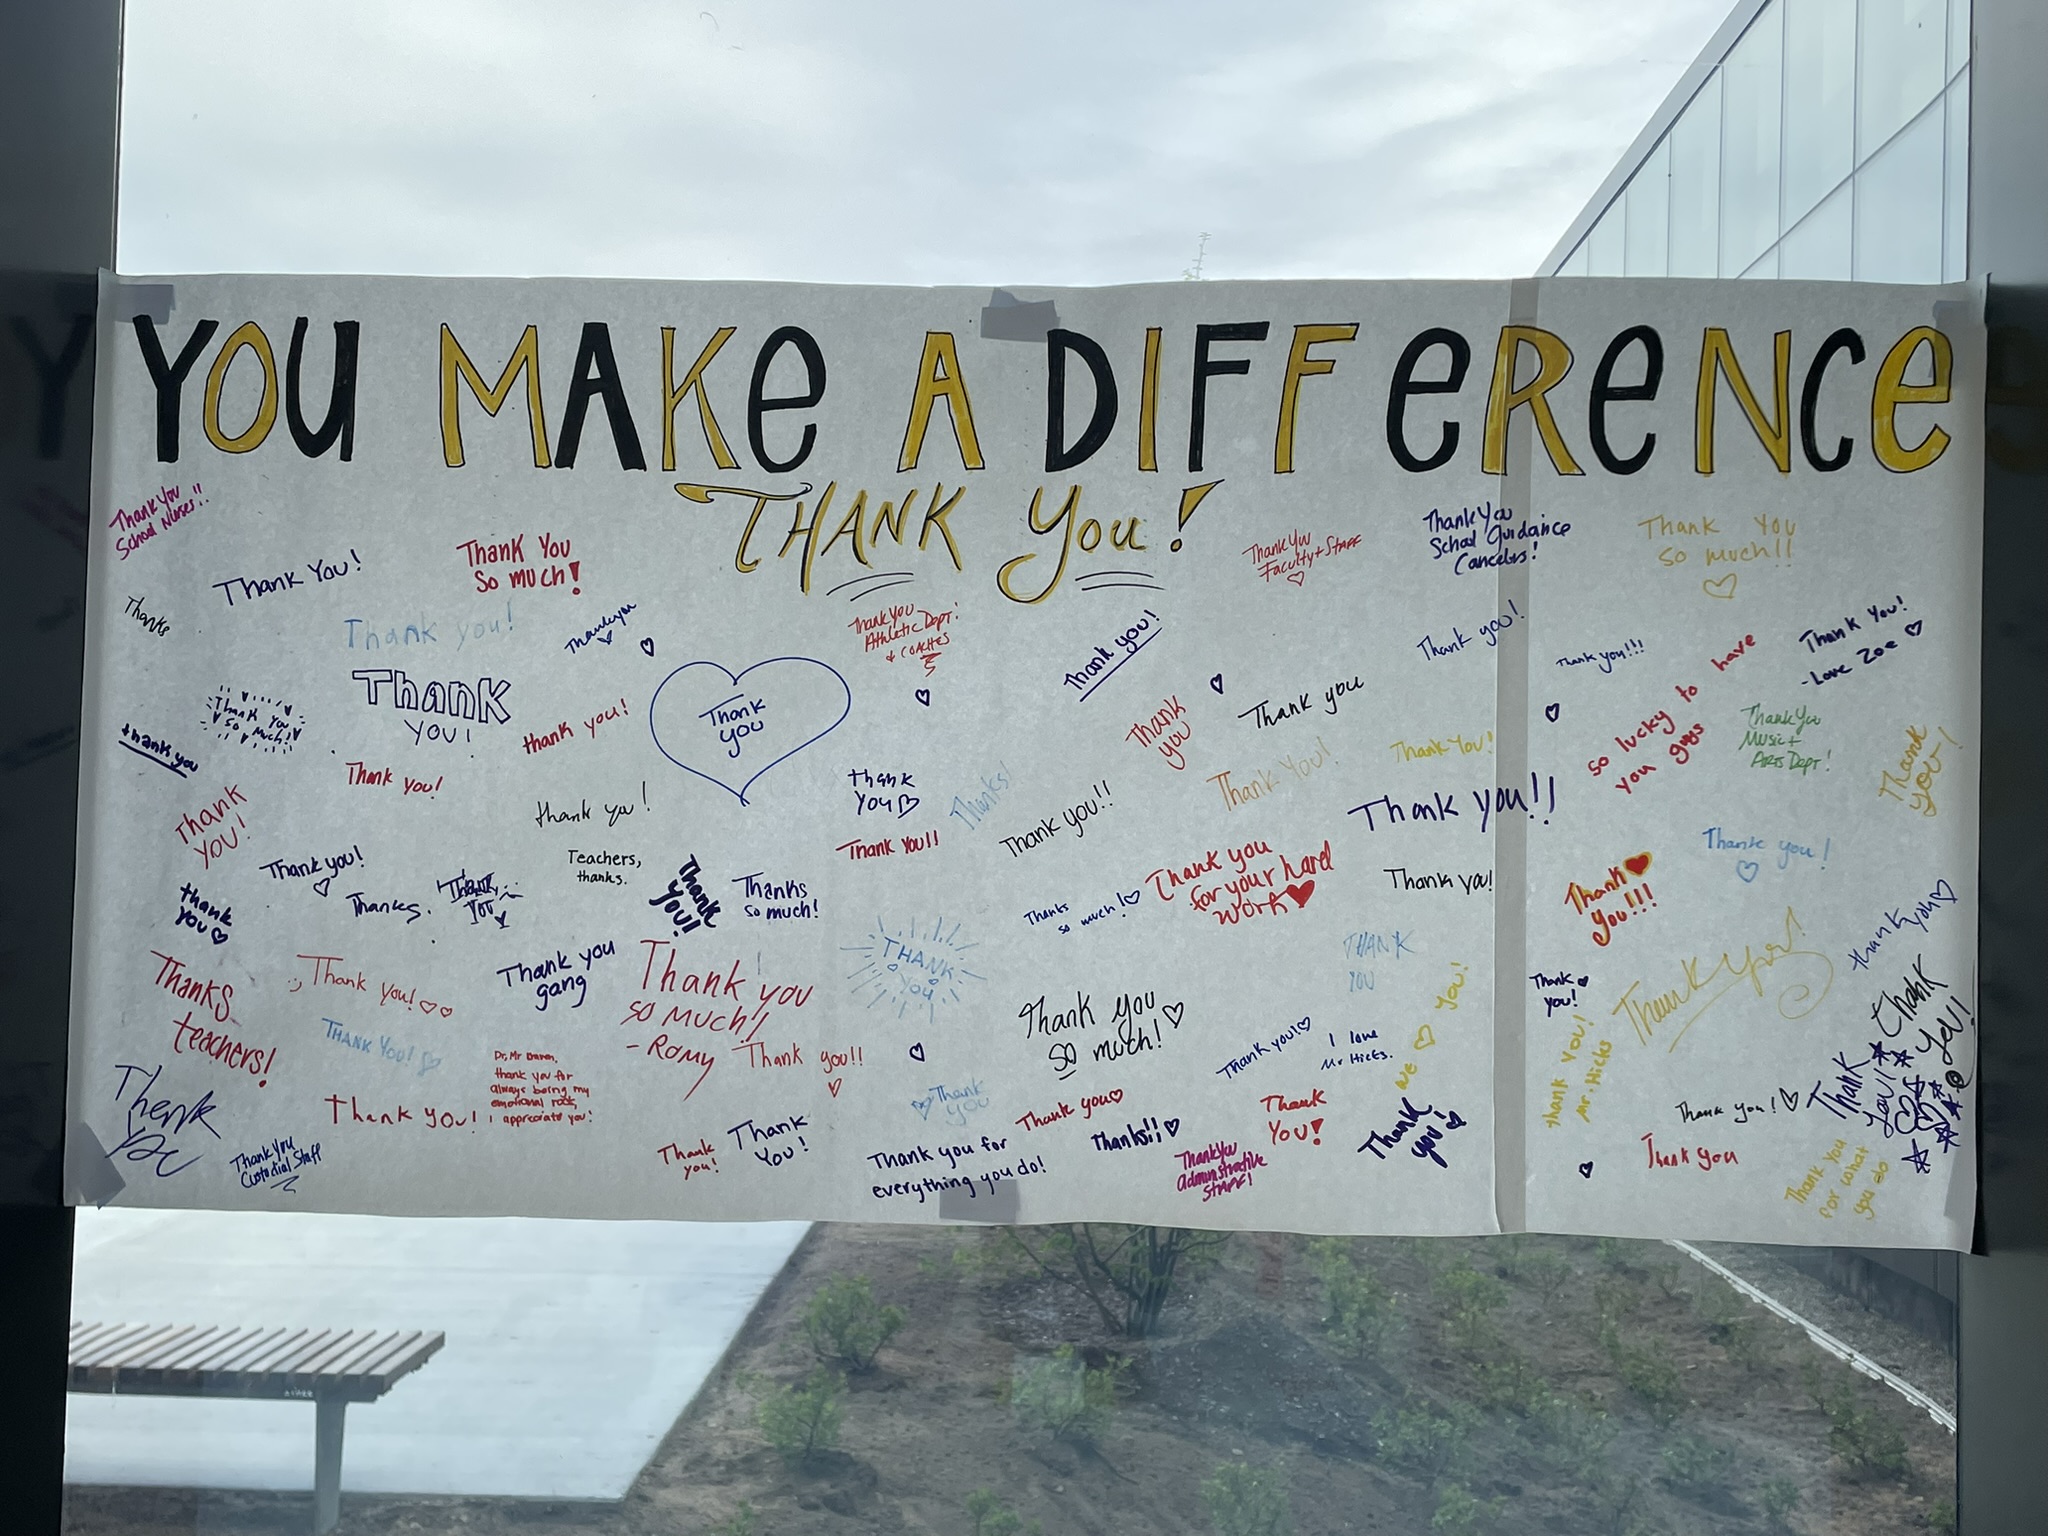 YOU MAKE A DIFFERENCE
THANK You!
Thank You
School Nurses!!
Thank You!
Thank You
So much!
Thank You
Faculty + Staff
Thank You
School Guidance
Cancelers!
Thank You
so much!!
Thanks
Thank you!
Thank you
Thank You
Athletic Dept!
& COACHES
Thank you!
Thank you!
Thank you!!!
so lucky to have
you guys
Thank You!
-Love Zoe
Thank you
so much!
Thank
you!
thank you!
Thank
you
Thank
you
Thank you
Thank You!
Thank You
Music +
Arts Dept!
Thank
you!
thank you
Thank you!
thank you!
thank
you
Thanks!
Thank you!!
Thank You!
Thank you!!
Thank
you!
Thank you!
Thank You!!
Thank you
for your hard
work
Thank you!
Thank you!
Teachers,
thanks.
Thank
you!
Thanks
so much!
Thanks
so much!
Thank
you!!!
thank
you
Thanks.
Thank
you
Thank you
gang
Thank you
so much!!
- Romy
THANK
you
THANK
YOU
Thank you!
thank you
Thanks
teachers!
:) Thank you!
Thank You!
Thank you
so much!
Thank you!
I love
Mr Hicks.
we you!
Thank
you!
thank you!
Mr. Hicks
Thank
you!
Thank
you!
thank you for
always being my
emotional rock,
I appreciate you!
Thank you!!
Thank
Thank you!
Thank
you
Thank you
Thank
You!
Thank
you!
Thank you!
Thank You
Custodial Staff
Thank
you!
Thank
You!
Thank you for
everything you do!
Thanks!!
Thank You
Administrative
Staff!
Thank you
Thank you
for what
you do